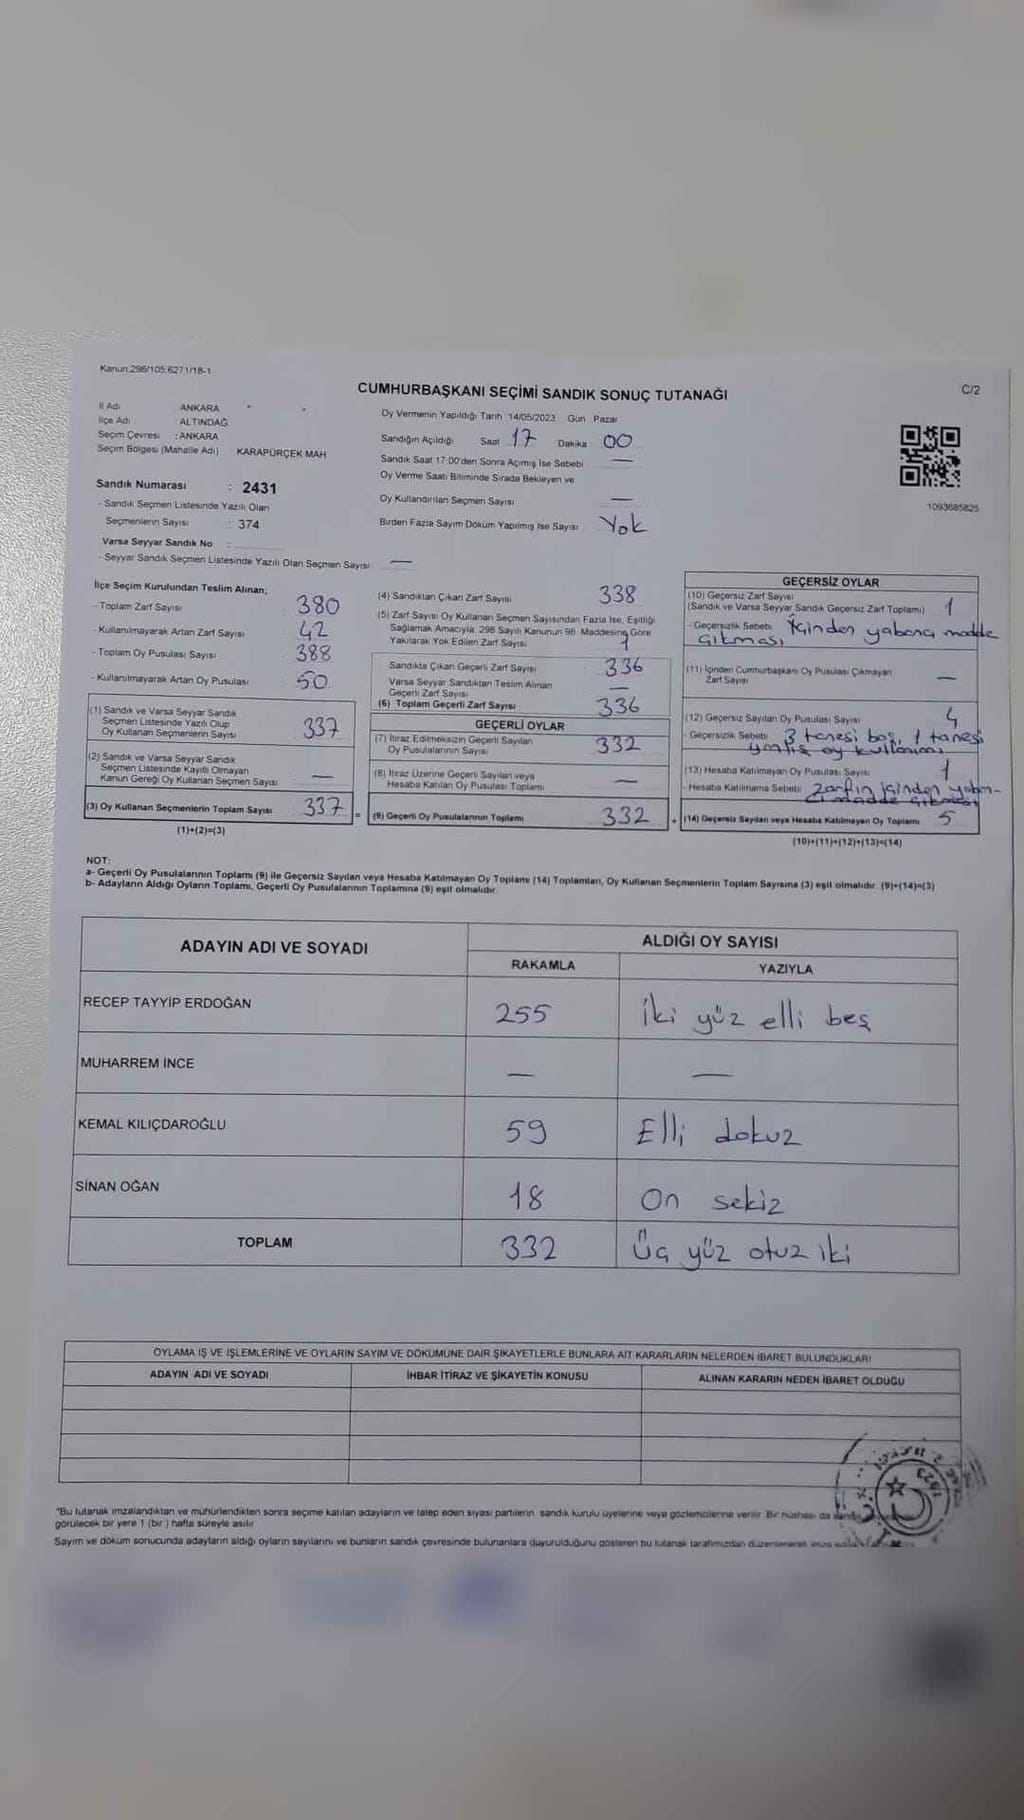 Kanun.298/105.6271/18-1
C/2
CUMHURBAŞKANI SEÇİMİ SANDIK SONUÇ TUTANAĞI
İl Adı ANKARA
İlçe Adı ALTINDAĞ
Seçim Çevresi : ANKARA
Seçim Bölgesi (Mahalle Adı) KARAPÜRÇEK MAH
Sandık Numarası : 2431
- Sandık Seçmen Listesinde Yazılı Olan
Seçmenlerin Sayısı : 374
Varsa Seyyar Sandık No :
- Seyyar Sandık Seçmen Listesinde Yazılı Olan Seçmen Sayısı —
Oy Vermenin Yapıldığı Tarih 14/05/2023 Gün Pazar
Sandığın Açıldığı Saat 17 Dakika 00
Sandık Saat 17:00'den Sonra Açımış İse Sebebi —
Oy Verme Saati Bitiminde Sırada Bekleyen ve
Oy Kullandırılan Seçmen Sayısı —
Birden Fazla Sayım Döküm Yapılmış İse Sayısı Yok
1093685825
İlçe Seçim Kurulundan Teslim Alınan;
- Toplam Zarf Sayısı 380
- Kullanılmayarak Artan Zarf Sayısı 42
- Toplam Oy Pusulası Sayısı 388
- Kullanılmayarak Artan Oy Pusulası 50
(1) Sandık ve Varsa Seyyar Sandık
Seçmen Listesinde Yazılı Olup
Oy Kullanan Seçmenlerin Sayısı 337
(2) Sandık ve Varsa Seyyar Sandık
Seçmen Listesinde Kayıtlı Olmayan
Kanun Gereği Oy Kullanan Seçmen Sayısı —
(3) Oy Kullanan Seçmenlerin Toplam Sayısı 337 =
(1)+(2)=(3)
(4) Sandıktan Çıkan Zarf Sayısı 338
(5) Zarf Sayısı Oy Kullanan Seçmen Sayısından Fazla İse, Eşitliği
Sağlamak Amacıyla, 298 Sayılı Kanunun 98. Maddesine Göre
Yakılarak Yok Edilen Zarf Sayısı 1
Sandıkta Çıkan Geçerli Zarf Sayısı 336
Varsa Seyyar Sandıktan Teslim Alınan
Geçerli Zarf Sayısı —
(6) Toplam Geçerli Zarf Sayısı 336
GEÇERLİ OYLAR
(7) İtiraz Edilmeksizin Geçerli Sayılan
Oy Pusulalarının Sayısı 332
(8) İtiraz Üzerine Geçerli Sayılan veya
Hesaba Katılan Oy Pusulası Toplamı —
(9) Geçerli Oy Pusulalarının Toplamı 332 +
GEÇERSİZ OYLAR
(10) Geçersiz Zarf Sayısı
(Sandık ve Varsa Seyyar Sandık Geçersiz Zarf Toplamı) 1
- Geçersizlik Sebebi İçinden yabancı madde
çıkması
(11) İçinden Cumhurbaşkanı Oy Pusulası Çıkmayan
Zarf Sayısı —
(12) Geçersiz Sayılan Oy Pusulası Sayısı 4
- Geçersizlik Sebebi 3 tanesi boş, 1 tanesi
oy
(13) Hesaba Katılmayan Oy Pusulası Sayısı 1
- Hesaba Katılmama Sebebi zarfın içinden yaban-
cı madde çıkması
(14) Geçersiz Sayılan veya Hesaba Katılmayan Oy Toplamı 5
(10)+(11)+(12)+(13)=(14)
NOT:
a- Geçerli Oy Pusulalarının Toplamı (9) ile Geçersiz Sayılan veya Hesaba Katılmayan Oy Toplamı (14) Toplamları, Oy Kullanan Seçmenlerin Toplam Sayısına (3) eşit olmalıdır. (9)+(14)=(3)
b- Adayların Aldığı Oyların Toplamı, Geçerli Oy Pusulalarının Toplamına (9) eşit olmalıdır.
ADAYIN ADI VE SOYADI ALDIĞI OY SAYISI
RAKAMLA YAZIYLA
RECEP TAYYİP ERDOĞAN 255 İki yüz elli beş
MUHARREM İNCE — —
KEMAL KILIÇDAROĞLU 59 Elli dokuz
SİNAN OĞAN 18 On sekiz
TOPLAM 332 Üç yüz otuz iki
OYLAMA İŞ VE İŞLEMLERİNE VE OYLARIN SAYIM VE DÖKÜMÜNE DAİR ŞİKAYETLERLE BUNLARA AİT KARARLARIN NELERDEN İBARET BULUNDUKLARI
ADAYIN ADI VE SOYADI İHBAR İTİRAZ VE ŞİKAYETİN KONUSU ALINAN KARARIN NEDEN İBARET OLDUĞU
"Bu tutanak imzalandıktan ve mühürlendikten sonra seçime katılan adayların ve talep eden siyasi partilerin sandık kurulu üyelerine veya gözlemcilerine verilir. Bir nüshası da
görülecek bir yere 1 (bir ) hafta süreyle asılır
Sayım ve döküm sonucunda adayların aldığı oyların sayılarını ve bunların sandık çevresinde bulunanlara duyurulduğunu gösteren bu tutanak tarafımızdan düzenlenerek imza